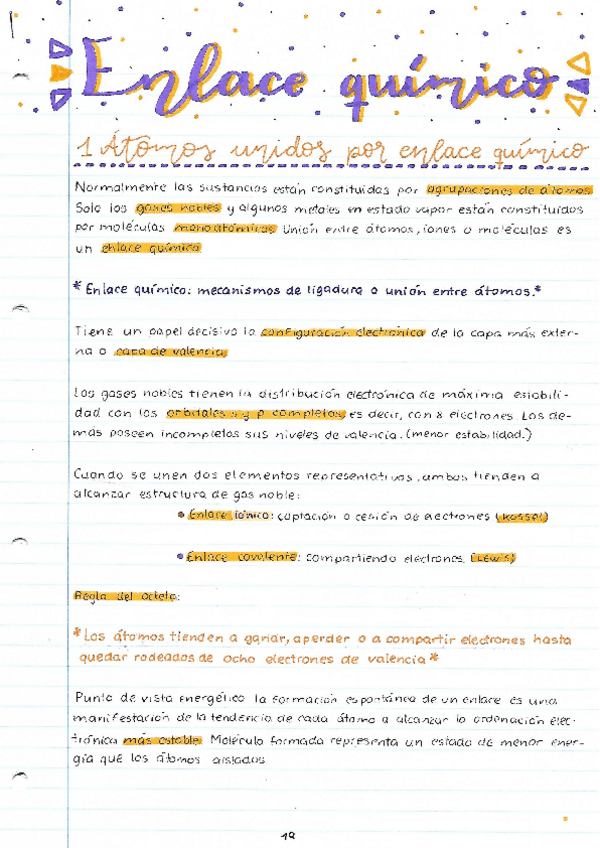 Enlace químico
1 Átomos unidos por enlace químico
Normalmente las sustancias están constituidas por agrupaciones de átomos.
Solo los gases nobles y algunos metales en estado vapor están constituidos
por moléculas monoatómicas. Unión entre átomos, iones o moléculas es
un enlace químico.
* Enlace químico: mecanismos de ligadura o unión entre átomos.*
Tiene un papel decisivo la configuración electrónica de la capa más exter-
na o capa de valencia.
Los gases nobles tienen la distribución electrónica de máxima estabili-
dad con los orbitales s y p completos, es decir, con 8 electrones. Los de-
más poseen incompletos sus niveles de valencia. (menor estabilidad.)
Cuando se unen dos elementos representativos, ambos tienden a
alcanzar estructura de gas noble:
• Enlace iónico: captación o cesión de electrones (Kossel)
• Enlace covalente: compartiendo electrones. (Lewis)
Regla del octeto:
*Los átomos tienden a ganar, a perder o a compartir electrones hasta
quedar rodeados de ocho electrones de valencia*
Punto de vista energético la formación espontánea de un enlace es una
manifestación de la tendencia de cada átomo a alcanzar la ordenación elec-
trónica más estable. Molécula formada representa un estado de menor ener-
gía que los átomos aislados.